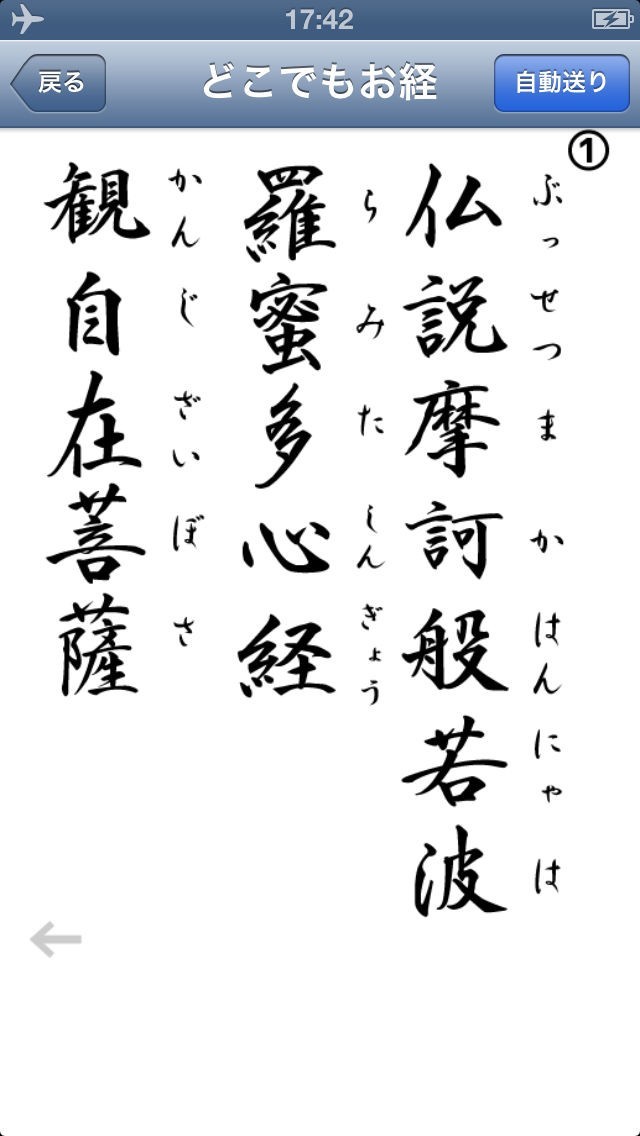 17:42
戻る
どこでもお経
自動送り
①
仏説摩訶般若波
ぶっせつまかはんにゃは
羅蜜多心経
らみたしんぎょう
観自在菩薩
かんじざいぼさ